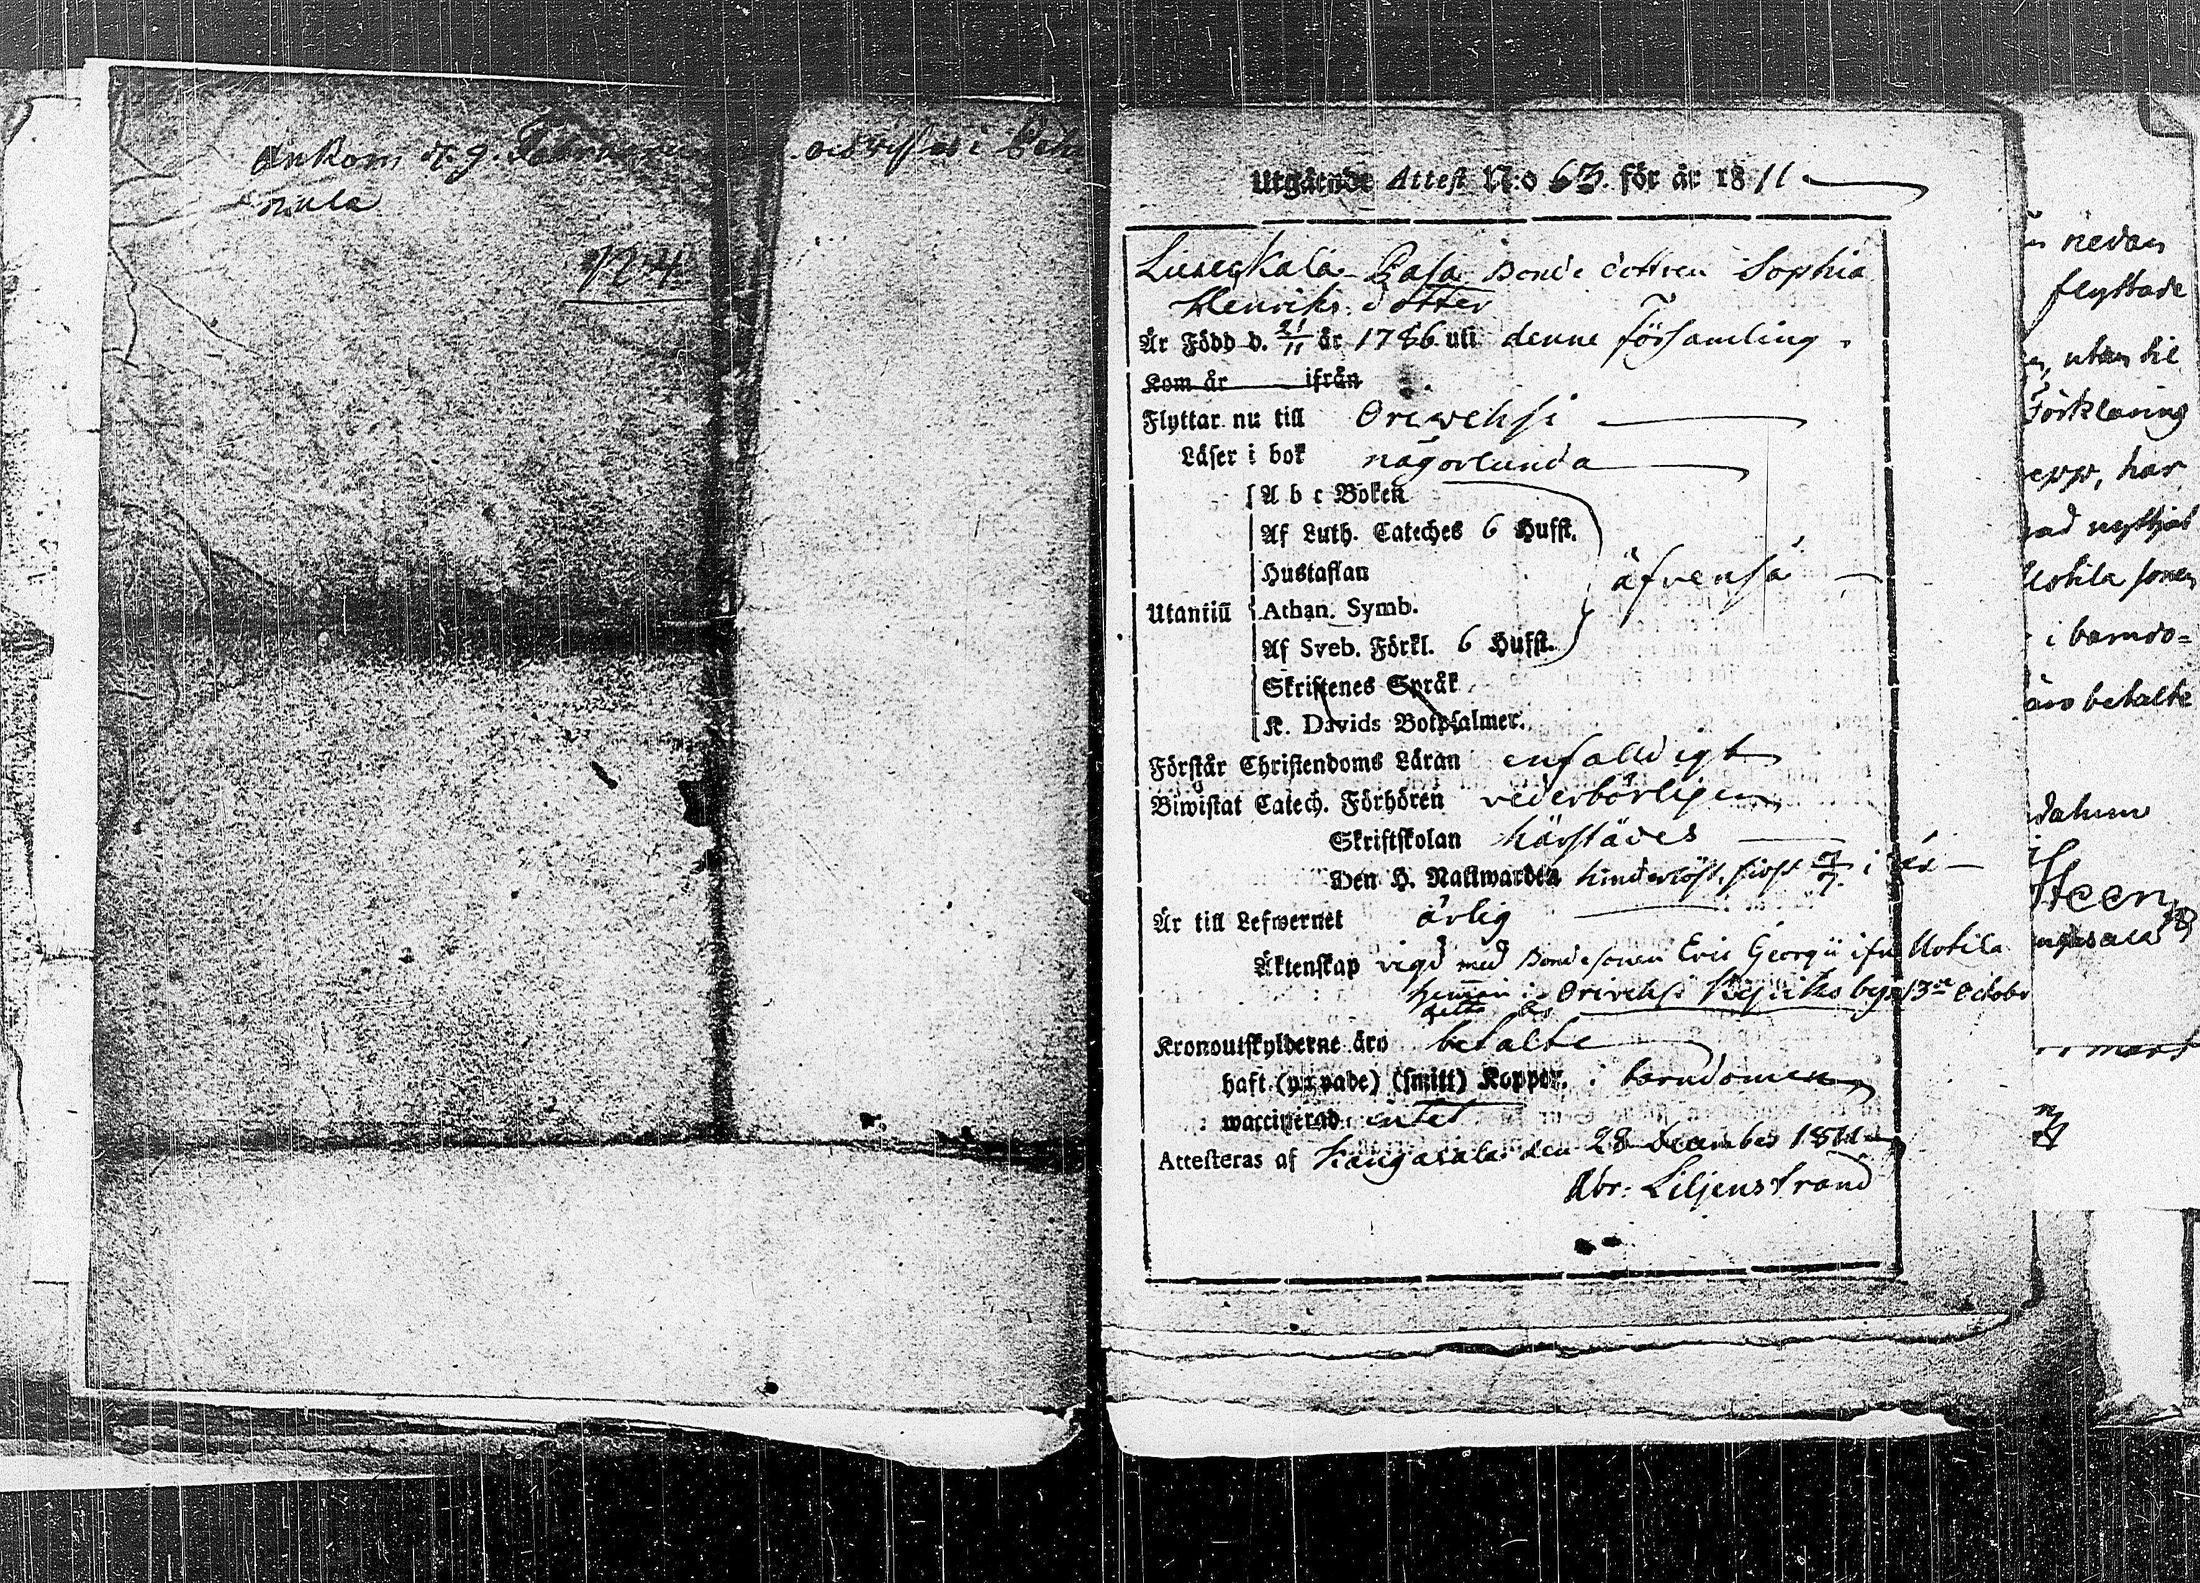 Ankom d. 9. Februarii
124
Utgående Attest N:o 63. för år 1811
Liuexkala Pasa Bonde dottren Sophia
Henriks dotter
Är Född d. 21/11 år 1786 uti denne Församling.
Kom år ifrån
Flyttar nu till Orewehsi
Läser i bok någorlunda
A b c Boken
Af Luth. Cateches 6 Hufst.
Hustaflan
äfvenså
Utantill Athan. Symb.
Af Sveb. Förkl. 6 Hufst.
Skriftenes Språk
K. Davids Botpsalmer.
Förstår Christendoms Läran enfalldigt
Biwistat Catech. Förhören vederbörligen
Skriftskolan härstädes
Den H. Nattwarden hinderlöst, sidst 7/7 i år
Är till Lefwernet ärlig
Äktenskap vigd med Bondesonen Eric Georgii ifn Uotila
hemman i Orevehsi by 13de Octobr
Kronoutskylderne äro betalte
haft (ympade) (smitt) Koppor i barndomen
waccinerad intet
Attesteras af Kangasala den 28 December 1811
Abr: Liljenstrand
nedan
flyttade
, utan til
Förklaring
har
nyttjat
Uotila sonen
i barndo=
äro betalte
datum
Steen